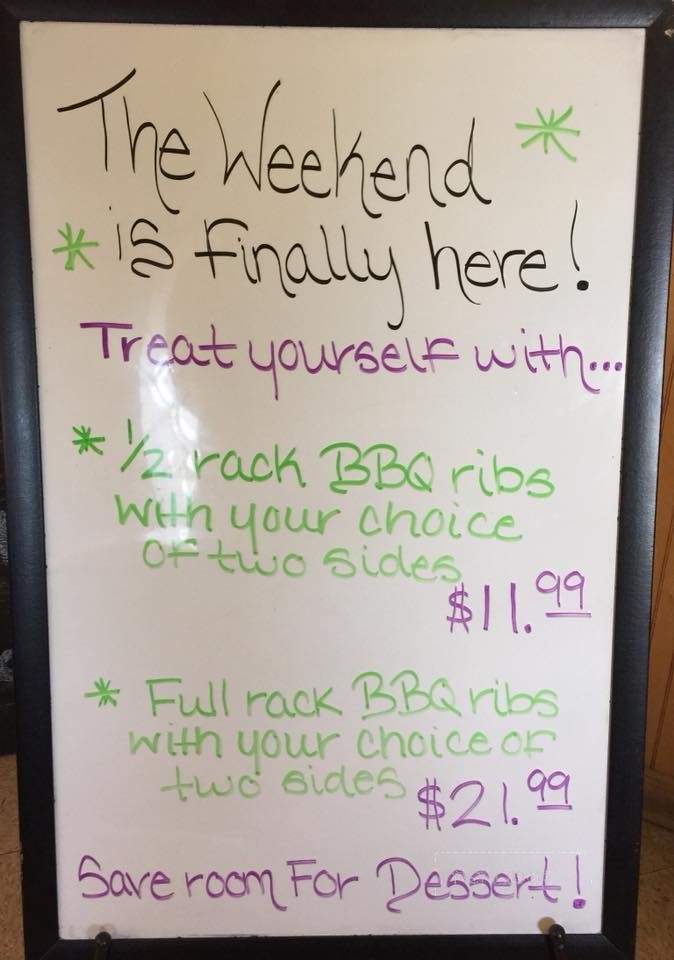 The Weekend
is finally here!
Treat yourself with...
* 1/2 rack BBQ ribs
with your choice
of two sides
$11.99
* Full rack BBQ ribs
with your choice of
two sides $21.99
Save room For Dessert!